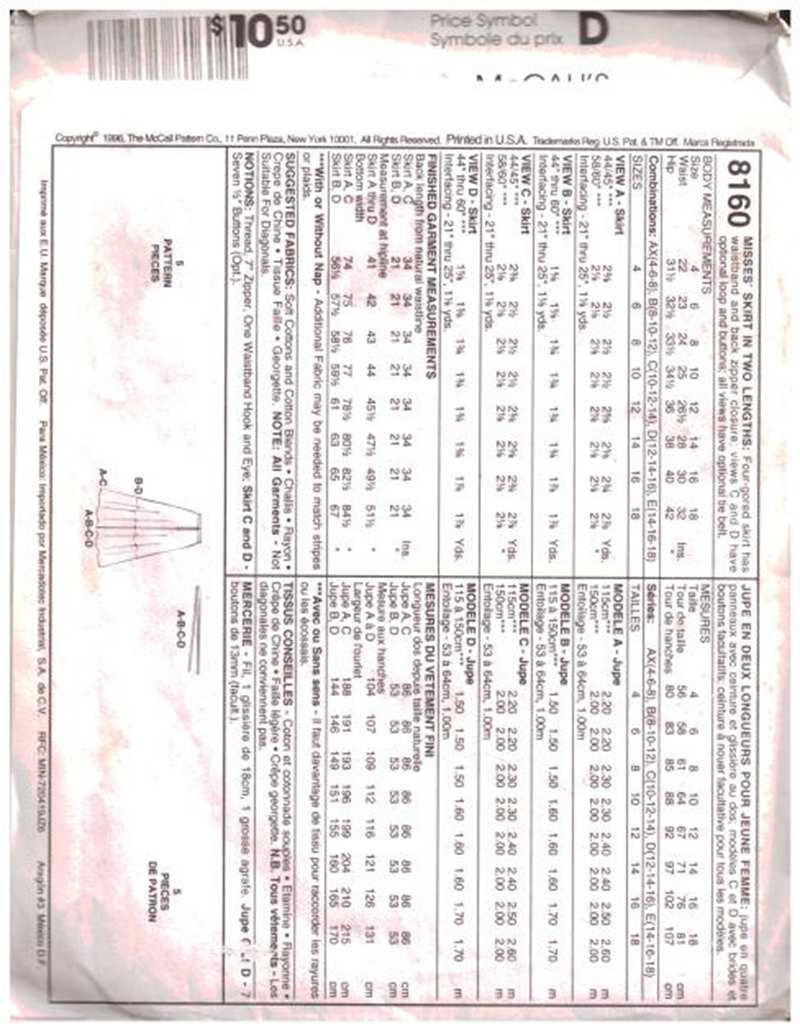 $10.50
U.S.A.
Price Symbol
Symbole du prix
D
McCALL'S
Copyright® 1996, The McCall Pattern Co., 11 Penn Plaza, New York 10001, All Rights Reserved. Printed in U.S.A. Trademarks Reg. U.S. Pat. & TM Off. Marca Registrada
8160 MISSES' SKIRT IN TWO LENGTHS: Four-gored skirt has
waistband and back zipper closure, views C and D have
optional loop and buttons; all views have optional tie belt.
BODY MEASUREMENTS
Size 4 6 8 10 12 14 16 18
Waist 22 23 24 25 26½ 28 30 32 Ins.
Hip 31½ 32½ 33½ 34½ 36 38 40 42 "
Combinations: AX(4-6-8), B(8-10-12), C(10-12-14), D(12-14-16), E(14-16-18)
SIZES 4 6 8 10 12 14 16 18
VIEW A - Skirt
44/45" ***
58/60" ***
Interfacing - 21" thru 25", 1⅛ yds.
VIEW B - Skirt
44" thru 60" ***
Interfacing - 21" thru 25", 1⅛ yds.
VIEW C - Skirt
44/45" ***
58/60" ***
Interfacing - 21" thru 25", 1⅛ yds.
VIEW D - Skirt
44" thru 60" ***
Interfacing - 21" thru 25", 1⅛ yds.
FINISHED GARMENT MEASUREMENTS
Back length from natural waistline
Skirt A, C 34 34 34 34 34 34 34 34 Ins.
Skirt B, D 21 21 21 21 21 21 21 21 "
Measurement at hipline
Skirt A thru D 41 42 43 44 45½ 47½ 49½ 51½ "
Bottom width
Skirt A, C 74 75 76 77 78½ 80½ 82½ 84½ "
Skirt B, D 56½ 57½ 58½ 59½ 61 63 65 67 "
***With or Without Nap - Additional Fabric may be needed to match stripes
or plaids.
SUGGESTED FABRICS: Soft Cottons and Cotton Blends • Challis • Rayon •
Crepe de Chine • Tissue Faille • Georgette. NOTE: All Garments - Not
Suitable For Diagonals.
NOTIONS: Thread, 7" Zipper, One Waistband Hook and Eye; Skirt C and D -
Seven ½" Buttons (Opt.).
5
PATTERN
PIECES
B-D
A-C
A-B-C-D
A-B-C-D
JUPE EN DEUX LONGUEURS POUR JEUNE FEMME: jupe en quatre
panneaux avec ceinture et glissière au dos, modèles C et D avec brides et
boutons facultatifs; ceinture à nouer facultative pour tous les modèles.
MESURES
Taille 4 6 8 10 12 14 16 18
Tour de taille 56 58 61 64 67 71 76 81 cm
Tour de hanches 80 83 85 88 92 97 102 107 cm
Séries: AX(4-6-8), B(8-10-12), C(10-12-14), D(12-14-16), E(14-16-18)
TAILLES 4 6 8 10 12 14 16 18
MODELE A - Jupe
115cm*** 2.20 2.20 2.30 2.30 2.40 2.40 2.50 2.60 m
150cm*** 2.00 2.00 2.00 2.00 2.00 2.00 2.00 2.00 m
Entoilage - 53 à 64cm, 1.00m
MODELE B - Jupe
115 à 150cm*** 1.50 1.50 1.50 1.60 1.60 1.60 1.70 1.70 m
Entoilage - 53 à 64cm, 1.00m
MODELE C - Jupe
115cm*** 2.20 2.20 2.30 2.30 2.40 2.40 2.50 2.60 m
150cm*** 2.00 2.00 2.00 2.00 2.00 2.00 2.00 2.00 m
Entoilage - 53 à 64cm, 1.00m
MODELE D - Jupe
115 à 150cm*** 1.50 1.50 1.50 1.60 1.60 1.60 1.70 1.70 m
Entoilage - 53 à 64cm, 1.00m
MESURES DU VETEMENT FINI
Longueur dos depuis taille naturelle
Jupe A, C 86 86 86 86 86 86 86 86 cm
Jupe B, D 53 53 53 53 53 53 53 53 cm
Mesure aux hanches
Jupe A à D 104 107 109 112 116 121 126 131 cm
Largeur de l'ourlet
Jupe A, C 188 191 193 196 199 204 210 215 cm
Jupe B, D 144 146 149 151 155 160 165 170 cm
***Avec ou Sans sens - Il faut davantage de tissu pour raccorder les rayures
ou les écossais.
TISSUS CONSEILLES - Coton et cotonnade souples • Etamine • Rayonne •
Crêpe de Chine • Faille légère • Crêpe georgette. N.B. Tous vêtements - Les
diagonales ne conviennent pas.
MERCERIE - Fil, 1 glissière de 18cm, 1 grosse agrafe. Jupe C et D - 7
boutons de 13mm (facult.).
5
PIECES
DE PATRON
Imprimé aux E.U. Marque déposée U.S. Pat. Off. Para México: Importado por Mercadotec Industrial, S.A. de C.V. RFC: MIN-720419JZ6 Aragón #3 México D.F.